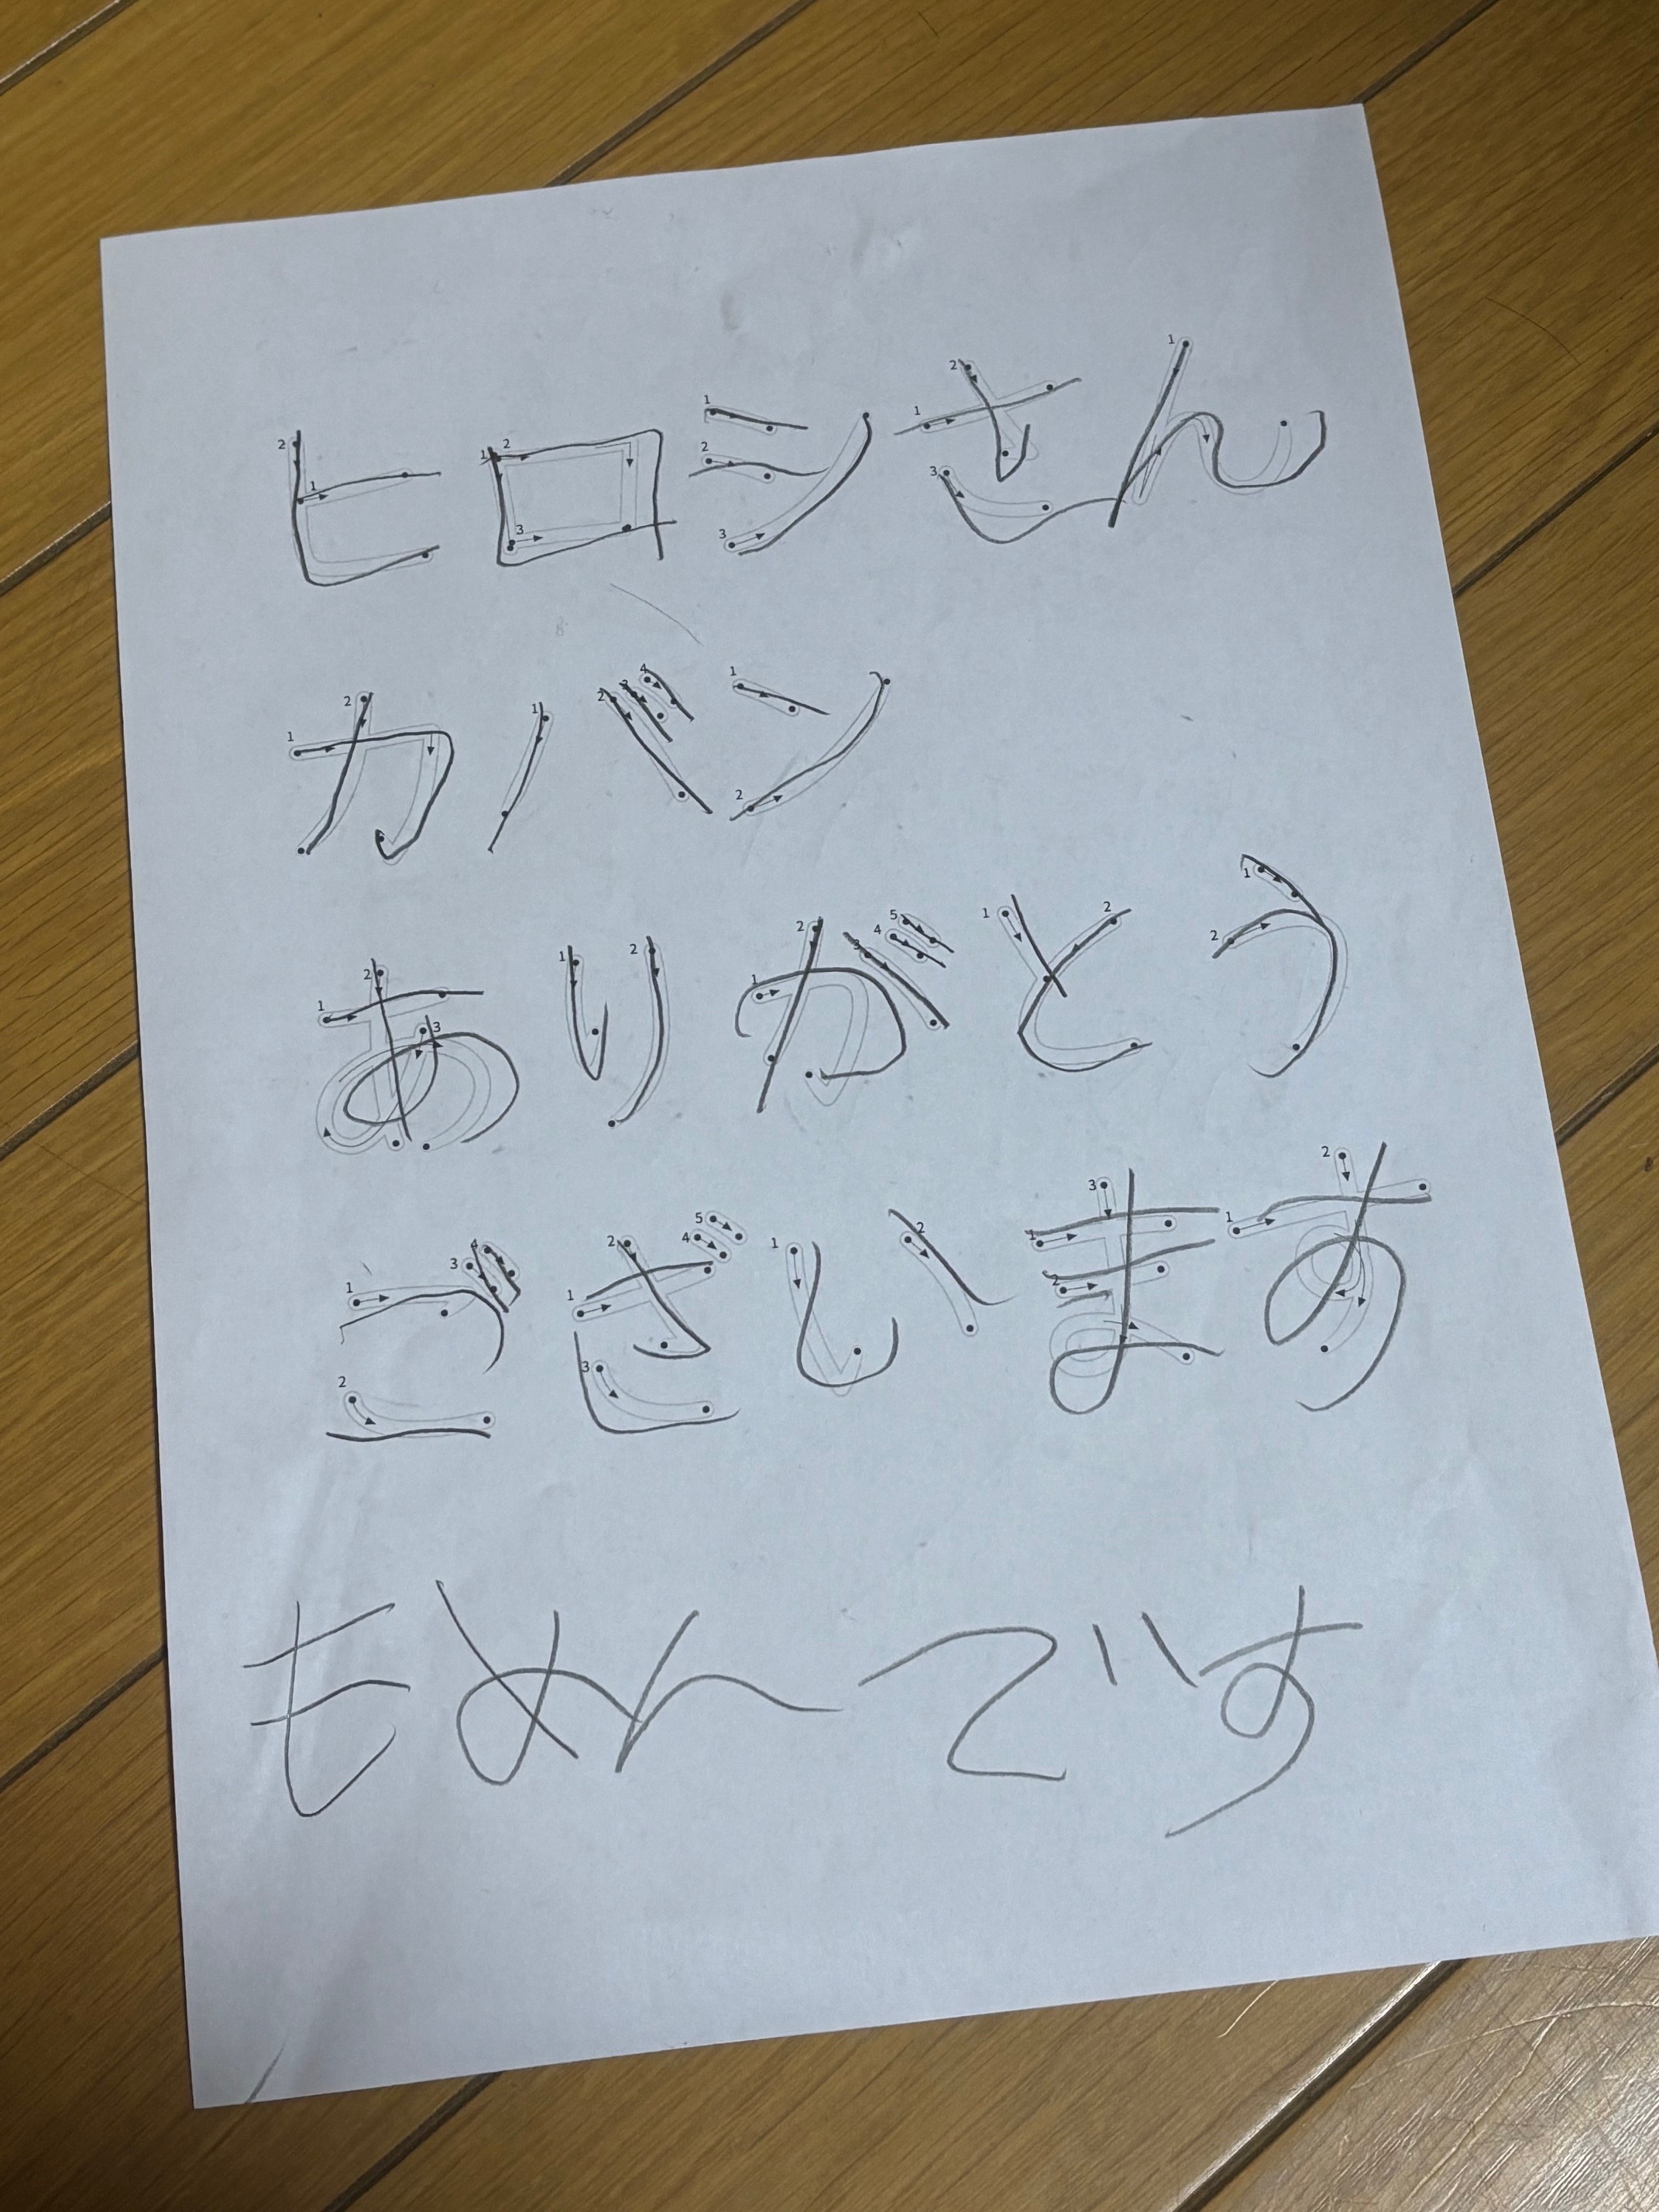 ヒロシさん
カバン
ありがとう
ございます
もめんです